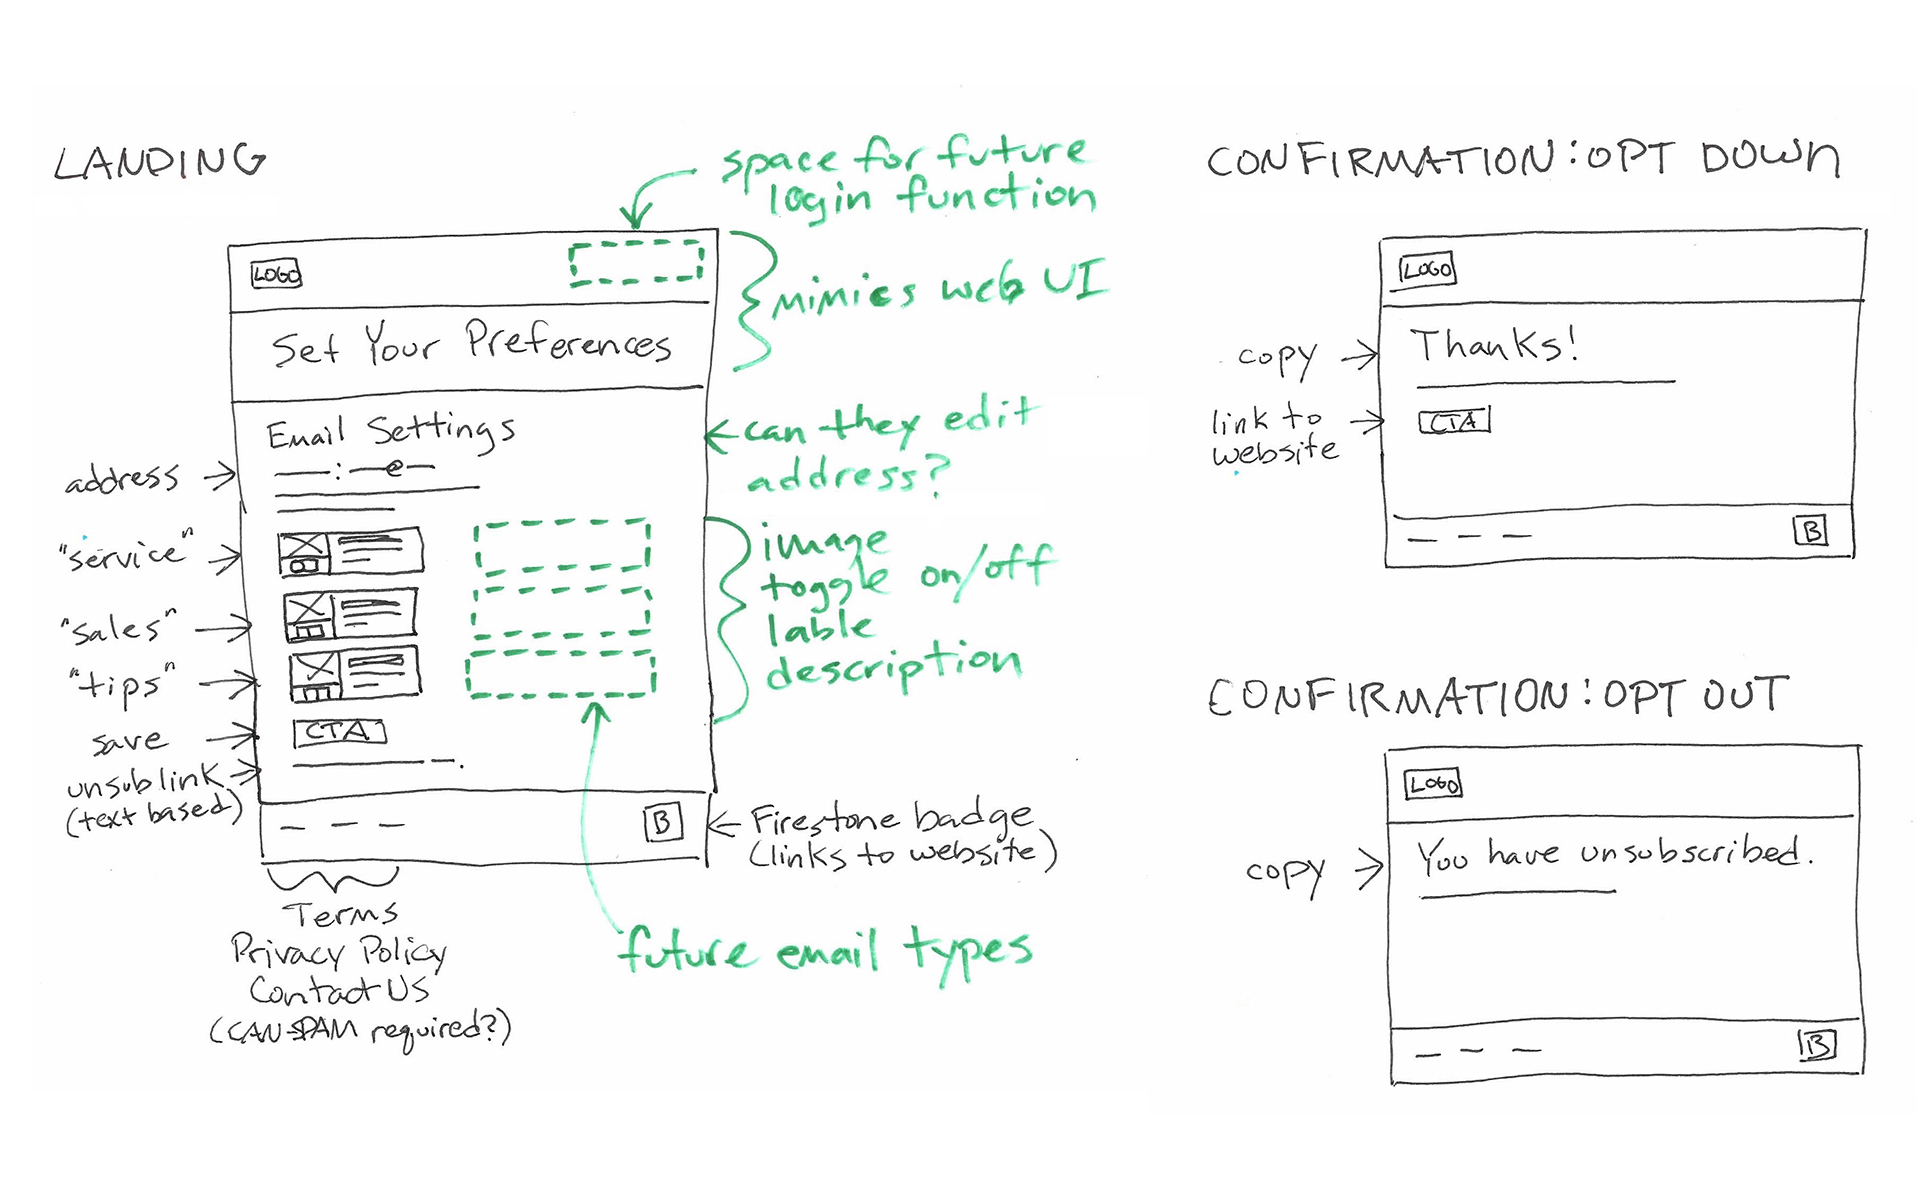 LANDING
space for future
login function
LOGO
mimics web UI
Set Your Preferences
Email Settings
can they edit
address?
address
@
"service"
"sales"
"tips"
image
toggle on/off
lable
description
save
CTA
unsub link
(text based)
B
Firestone badge
(links to website)
Terms
Privacy Policy
Contact Us
(CAN-SPAM required?)
future email types
CONFIRMATION: OPT DOWN
LOGO
copy
Thanks!
link to
website
CTA
B
CONFIRMATION: OPT OUT
LOGO
copy
You have unsubscribed.
B